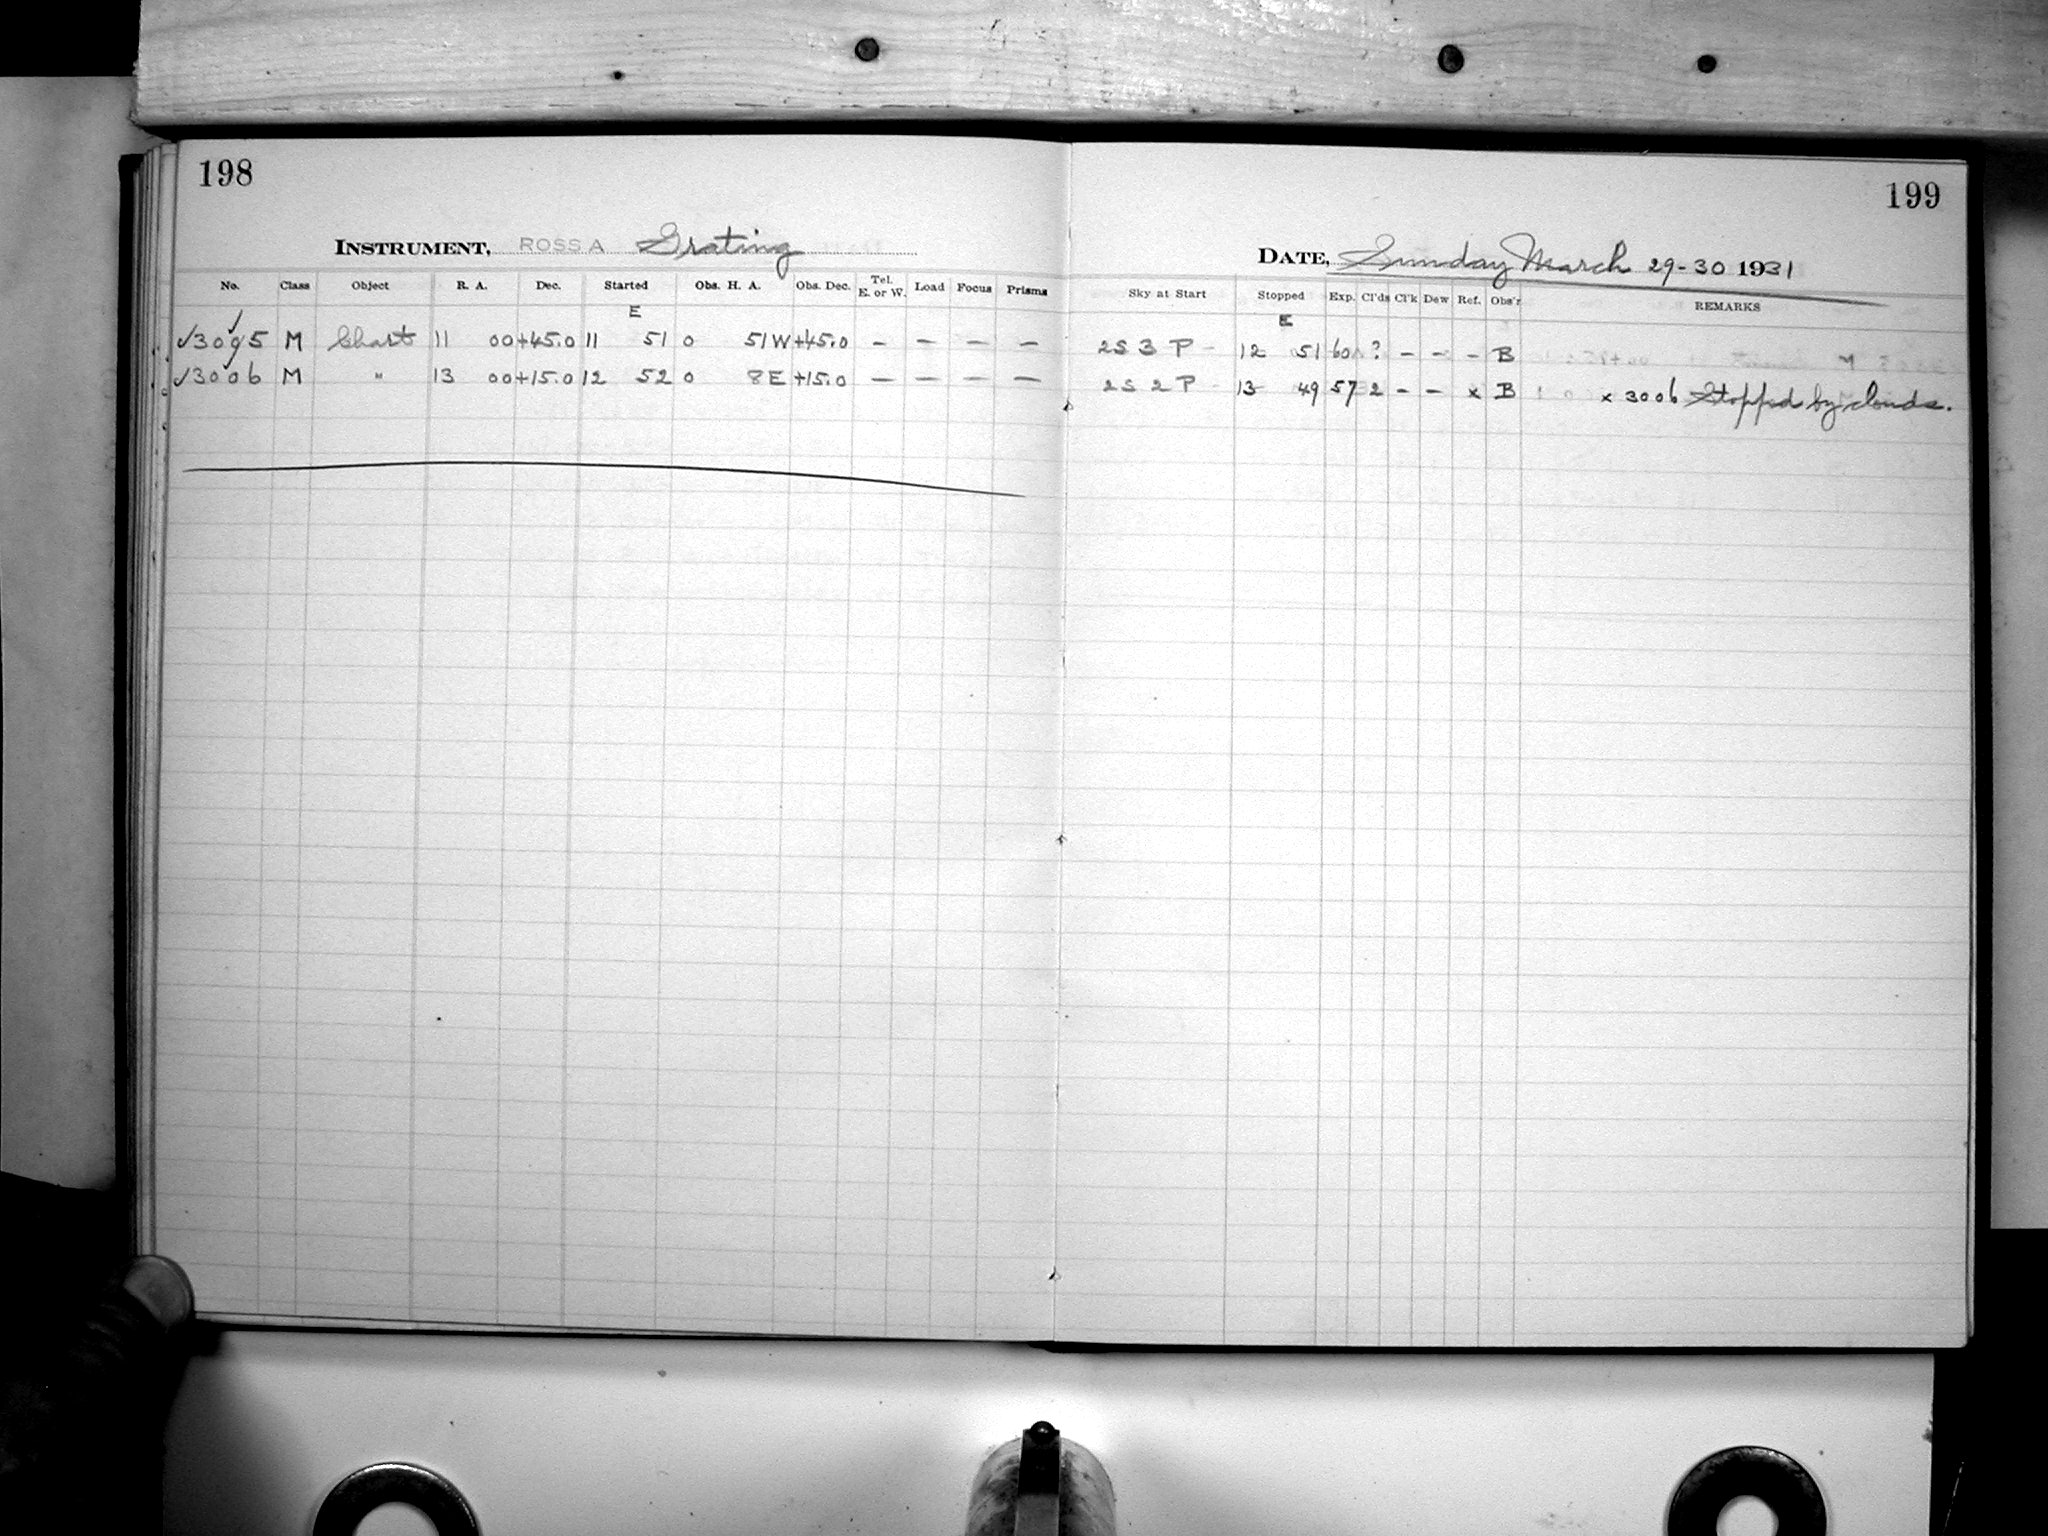 198
INSTRUMENT, ROSS A Grating
No. Class Object R. A. Dec. Started Obs. H. A. Obs. Dec. Tel. E. or W. Load Focus Prisms
E
✓3005 M Chart 11 00 +45.0 11 51 0 51 W +45.0 – – – –
✓3006 M " 13 00 +15.0 12 52 0 8 E +15.0 – – – –
199
DATE, Sunday March 29-30 1931
Sky at Start Stopped Exp. Cl'ds Cl'k Dew Ref. Obs'r REMARKS
E
2S 3 P - 12 51 60 ? – – – B
2S 2 P - 13 49 57 2 – – x B x 3006 Stopped by clouds.